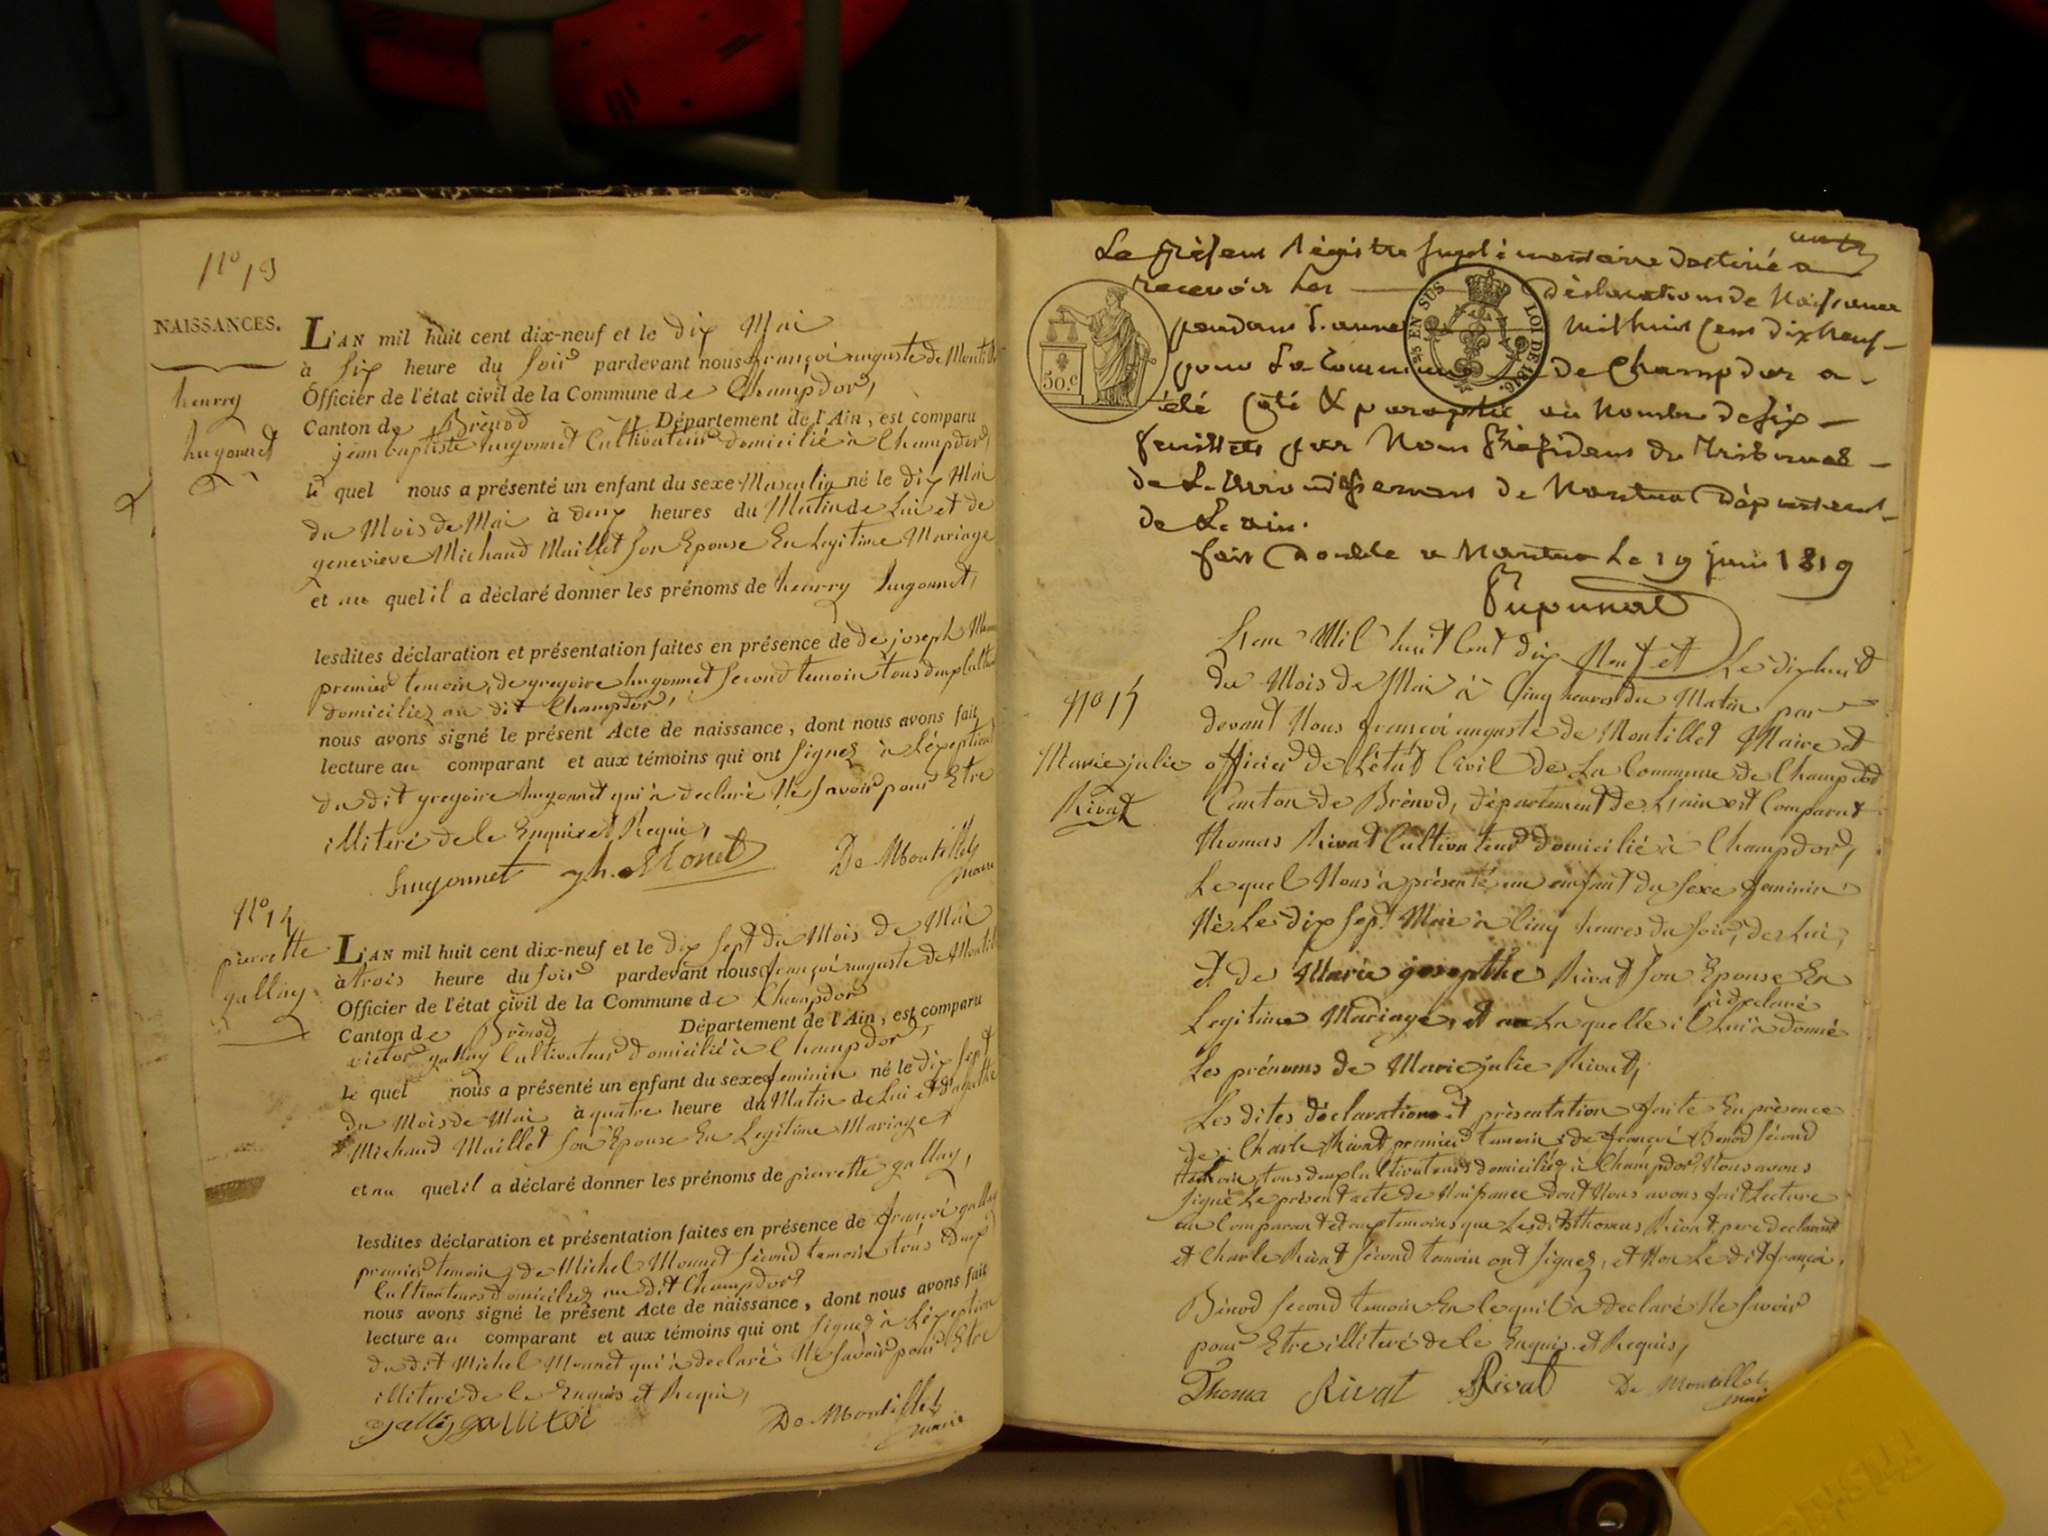 N° 13
NAISSANCES.
henrry
hugonnet
L'AN mil huit cent dix-neuf et le dix Mai
à six heure du soir pardevant nous françoi auguste de Montillet
Officier de l'état civil de la Commune de Champdor,
Canton de Brénod Département de l'Ain, est comparu
jean baptiste hugonnet Cultivateur domicilié à Champdor,
le quel nous a présenté un enfant du sexe Masculin né le dix Mai
du Mois de Mai à deux heures du Matin de Lui et de
genevieve Michaud Maillet son Epouse En Legitime Mariage
et au quel il a déclaré donner les prénoms de henrry hugonnet,
lesdites déclaration et présentation faites en présence de de joseph
premier temoin, de gregoire hugonnet second temoin tous deux
domiciliez au dit Champdor,
nous avons signé le présent Acte de naissance, dont nous avons fait
lecture au comparant et aux témoins qui ont signez à L'éxeption
du dit gregoire hugonnet qui à declaré Ne savoir pour Etre
illiteré de le Enquis et Requi,
hugonnet jh. Monet De Montillet
maire
N° 14
pierrette
gallay
L'AN mil huit cent dix-neuf et le dix sept du Mois de Mai
à trois heure du soir pardevant nous françoi auguste de Montil
Officier de l'état civil de la Commune de Champdor
Canton de Brénod Département de l'Ain, est comparu
victor gallay Cultivateur domicilié à Champdor,
le quel nous a présenté un enfant du sexe feminin né le dix sept
du Mois de Mai à quatre heure du Matin de Lui et d'
Michaud Maillet son Epouse En Legitime Mariage,
et au quel il a déclaré donner les prénoms de pierrette gallay,
lesdites déclaration et présentation faites en présence de françoi gallay
premier temoin, de Michel Monnet second temoin tous deux
Cultivateurs domiciliez au dit Champdor
nous avons signé le présent Acte de naissance, dont nous avons fait
lecture au comparant et aux témoins qui ont signez à L'éxeption
du dit Michel Monnet qui à declaré Ne savoir pour Etre
illiteré de le Enquis et Requi,
De Montillet
maire
Le présent Régistre suplémentaire destiné a
recevoir les déclarations de Naissance
pendant l'année mil huit cent dix neuf
pour La Commune de Champdor a
été coté & paraphé au Nombre de six
feuillets par Nous Président du Tribunal
de L'Arrondissement de Nantua Département
de L'ain.
fait Double a Nantua Le 19 juin 1819
50.c
EN SUS LOI DE 1816.
N° 15
Marie julie
Rivat
L'an Mil huit Cent dix Neuf et Le dixhuit
du Mois de Mai à Cinq heures du Matin par
devant Nous françoi auguste de Montillet Maire et
officier de L'état Civil de La Commune de Champdor
Canton de Brénod, département de L'ain est Comparut
Thomas Rivat Cultivateur domicilié à Champdor,
Le quel Nous à présenté un enfant du sexe feminin
Né Le dix sept Mai à Cinq heures du soir, de Lui,
et de Marie josepthe Rivat son Epouse En
à declaré
Legitime Mariage, et a Laquelle il Lui à donné
Les prénoms de Marie julie Rivat,
Les dites déclaration et présentation faite En présence
de Charle Rivat premier temoin, de françoi Binod second
temoin, tous deux Cultivateurs domiciliez à Champdor, Nous avons
signé Le présent acte de Naissance dont Nous avons fait Lecture
au Comparant et aux temoins que Lesdits thomas Rivat pere declarant
et Charle Rivat second temoin ont signez, et Non Le dit françoi,
Binod second temoin En le quil à declaré Ne savoir
pour Etre illiteré de le Enquis et Requis,
Thoma Rivat Rivat De Montillet
maire